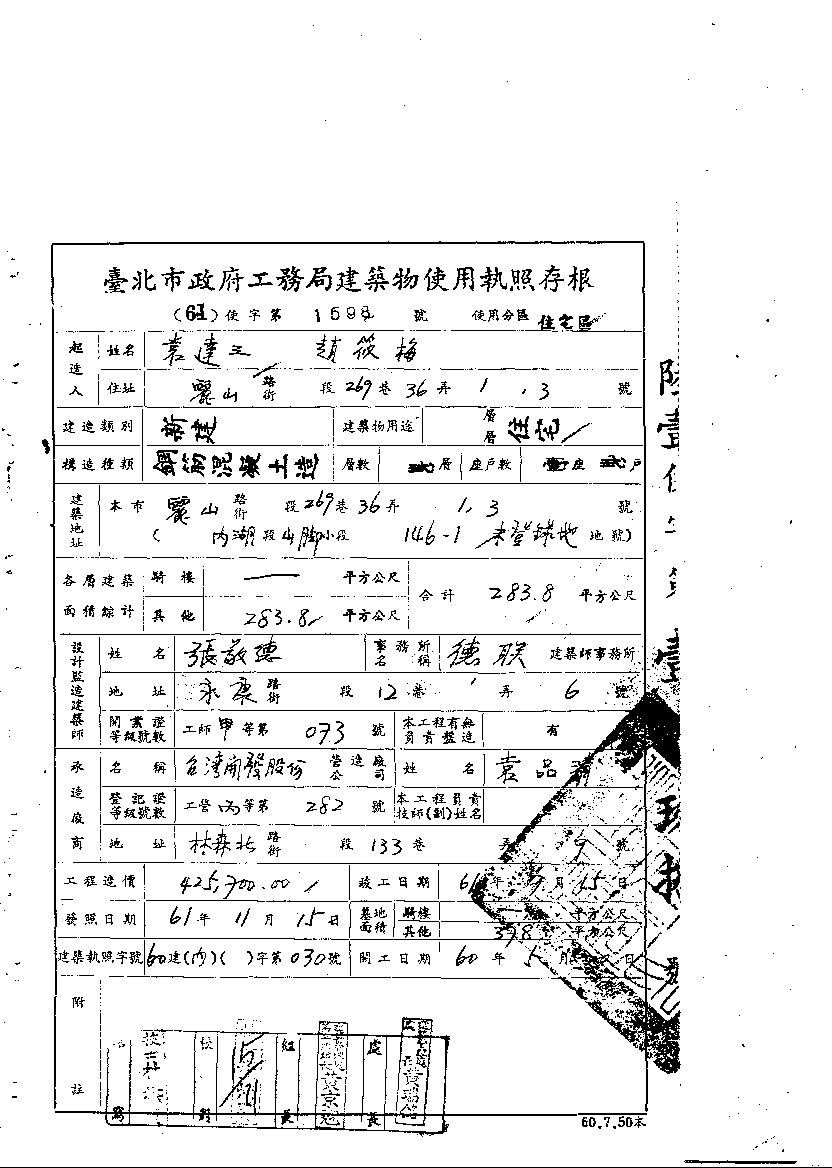 臺北市政府工務局建築物使用執照存根
(61)使字第 1598 號 使用分區 住宅區
起造人 姓名 袁達三 趙筱梅
住址 麗山 路街 段 269 巷 36 弄 1 . 3 號
建造類別 新建 建築物用途 層層 住宅
構造種類 鋼筋混凝土造 層數 貳層 座戶數 壹座 貳戶
建築地址 本市 麗山 路街 段 269 巷 36 弄 1, 3 號
( 內湖段山腳小段 146-1 未登錄地 地號)
各層建築面積綜計 騎樓 — 平方公尺 合計 283.8 平方公尺
其他 283.8 平方公尺
設計監造建築師 姓名 張敬德 事務所名稱 德联 建築師事務所
地址 永康 路街 段 12 巷 弄 6 號
開業證等級號數 工師甲等第 073 號 本工程有無負責監造 有
承造廠商 名稱 台湾開發股份 營造廠公司 姓名 袁品
登記證等級號數 工營丙等第 282 號 本工程負責技師(副)姓名
地址 林森北 路街 段 133 巷 弄 9 號
工程造價 425,700.00 竣工日期 61年 月 15日
發照日期 61年 11月 15日 基地面積 騎樓 — 平方公尺
其他 398 平方公尺
建築執照字號 60建(內)( )字第 030 號 開工日期 60年 5月 日
附註
校對 組長 處長
60.7.50本